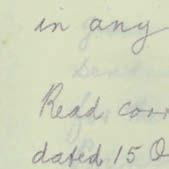 in any
Read corr
dated 15 O